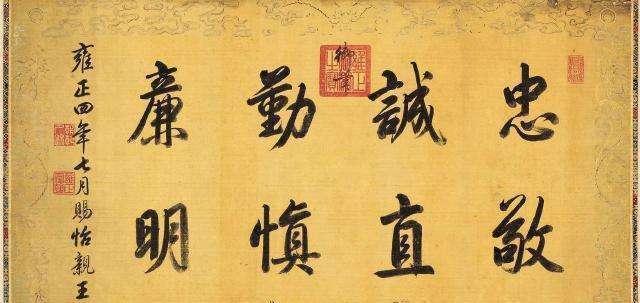 忠敬
誠直
御筆
勤慎
廉明
雍正四年七月賜怡親王